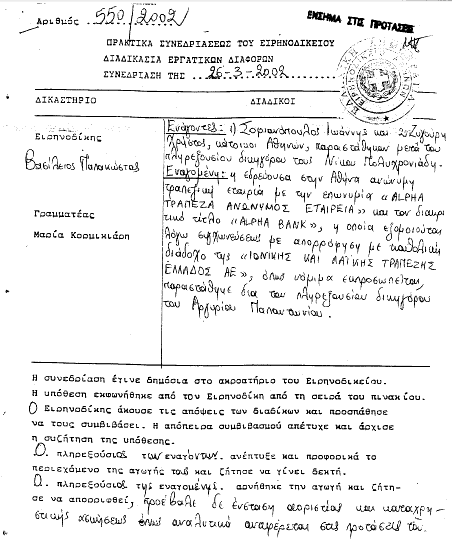 Αριθμός 550/2002
ΕΝΣΗΜΑ ΣΤΙΣ ΠΡΟΤΑΣΕΙΣ
ΠΡΑΚΤΙΚΑ ΣΥΝΕΔΡΙΑΣΕΩΣ ΤΟΥ ΕΙΡΗΝΟΔΙΚΕΙΟΥ
ΔΙΑΔΙΚΑΣΙΑ ΕΡΓΑΤΙΚΩΝ ΔΙΑΦΟΡΩΝ
ΣΥΝΕΔΡΙΑΣΗ ΤΗΣ 26-3-2002
ΔΙΚΑΣΤΗΡΙΟ ΔΙΑΔΙΚΟΙ
Ειρηνοδίκης
Βασίλειος Παπακώστας
Γραμματέας
Μαρία Κορμικιάρη
Ενάγοντες: 1) Σοριανόπουλος Ιωάννης και 2)
Χρήστος, κάτοικοι Αθηνών, παραστάθηκαν μετά του
πληρεξουσίου δικηγόρου τους Νίκου Πολυχρονιάδη.
Εναγομένη: η εδρεύουσα στην Αθήνα ανώνυμη
τραπεζική εταιρία με την επωνυμία «ALPHA
ΤΡΑΠΕΖΑ ΑΝΩΝΥΜΟΣ ΕΤΑΙΡΕΙΑ» και τον διακρι-
τικό τίτλο «ALPHA BANK», η οποία εξομοιούται
λόγω συγχωνεύσεως με απορρόφηση με καθολική
διάδοχο της «ΙΟΝΙΚΗΣ ΚΑΙ ΛΑΪΚΗΣ ΤΡΑΠΕΖΗΣ
ΕΛΛΑΔΟΣ ΑΕ», όπως νόμιμα εκπροσωπείται,
παραστάθηκε δια του πληρεξουσίου δικηγόρου
του Αργυρίου Παπαντωνίου.
Η συνεδρίαση έγινε δημόσια στο ακροατήριο του Ειρηνοδικείου.
Η υπόθεση εκφωνήθηκε από τον Ειρηνοδίκη από τη σειρά του πινακίου.
Ο Ειρηνοδίκης άκουσε τις απόψεις των διαδίκων και προσπάθησε
να τους συμβιβάσει. Η απόπειρα συμβιβασμού απέτυχε και άρχισε
η συζήτηση της υπόθεσης.
Ο. πληρεξούσιος των εναγόντων. ανέπτυξε και προφορικά το
περιεχόμενο της αγωγής τους και ζήτησε να γίνει δεκτή.
Ο. πληρεξούσιος της εναγομένης. αρνήθηκε την αγωγή και ζήτη-
σε να απορριφθεί, προέβαλε δε ένσταση αοριστίας και καταχρη-
στικής ασκήσεως όπως αναλυτικά αναφέρεται στις προτάσεις της.